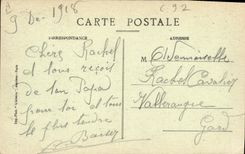 9 Dec 1918
C 92
CARTE POSTALE
CORRESPONDANCE
ADRESSE
Chère Rachel
et tous reçois
de ton Papa
pour toi et tous
le plus tendre
Baiser
M Demoiselle
Rachel
Valleraugue
Gard